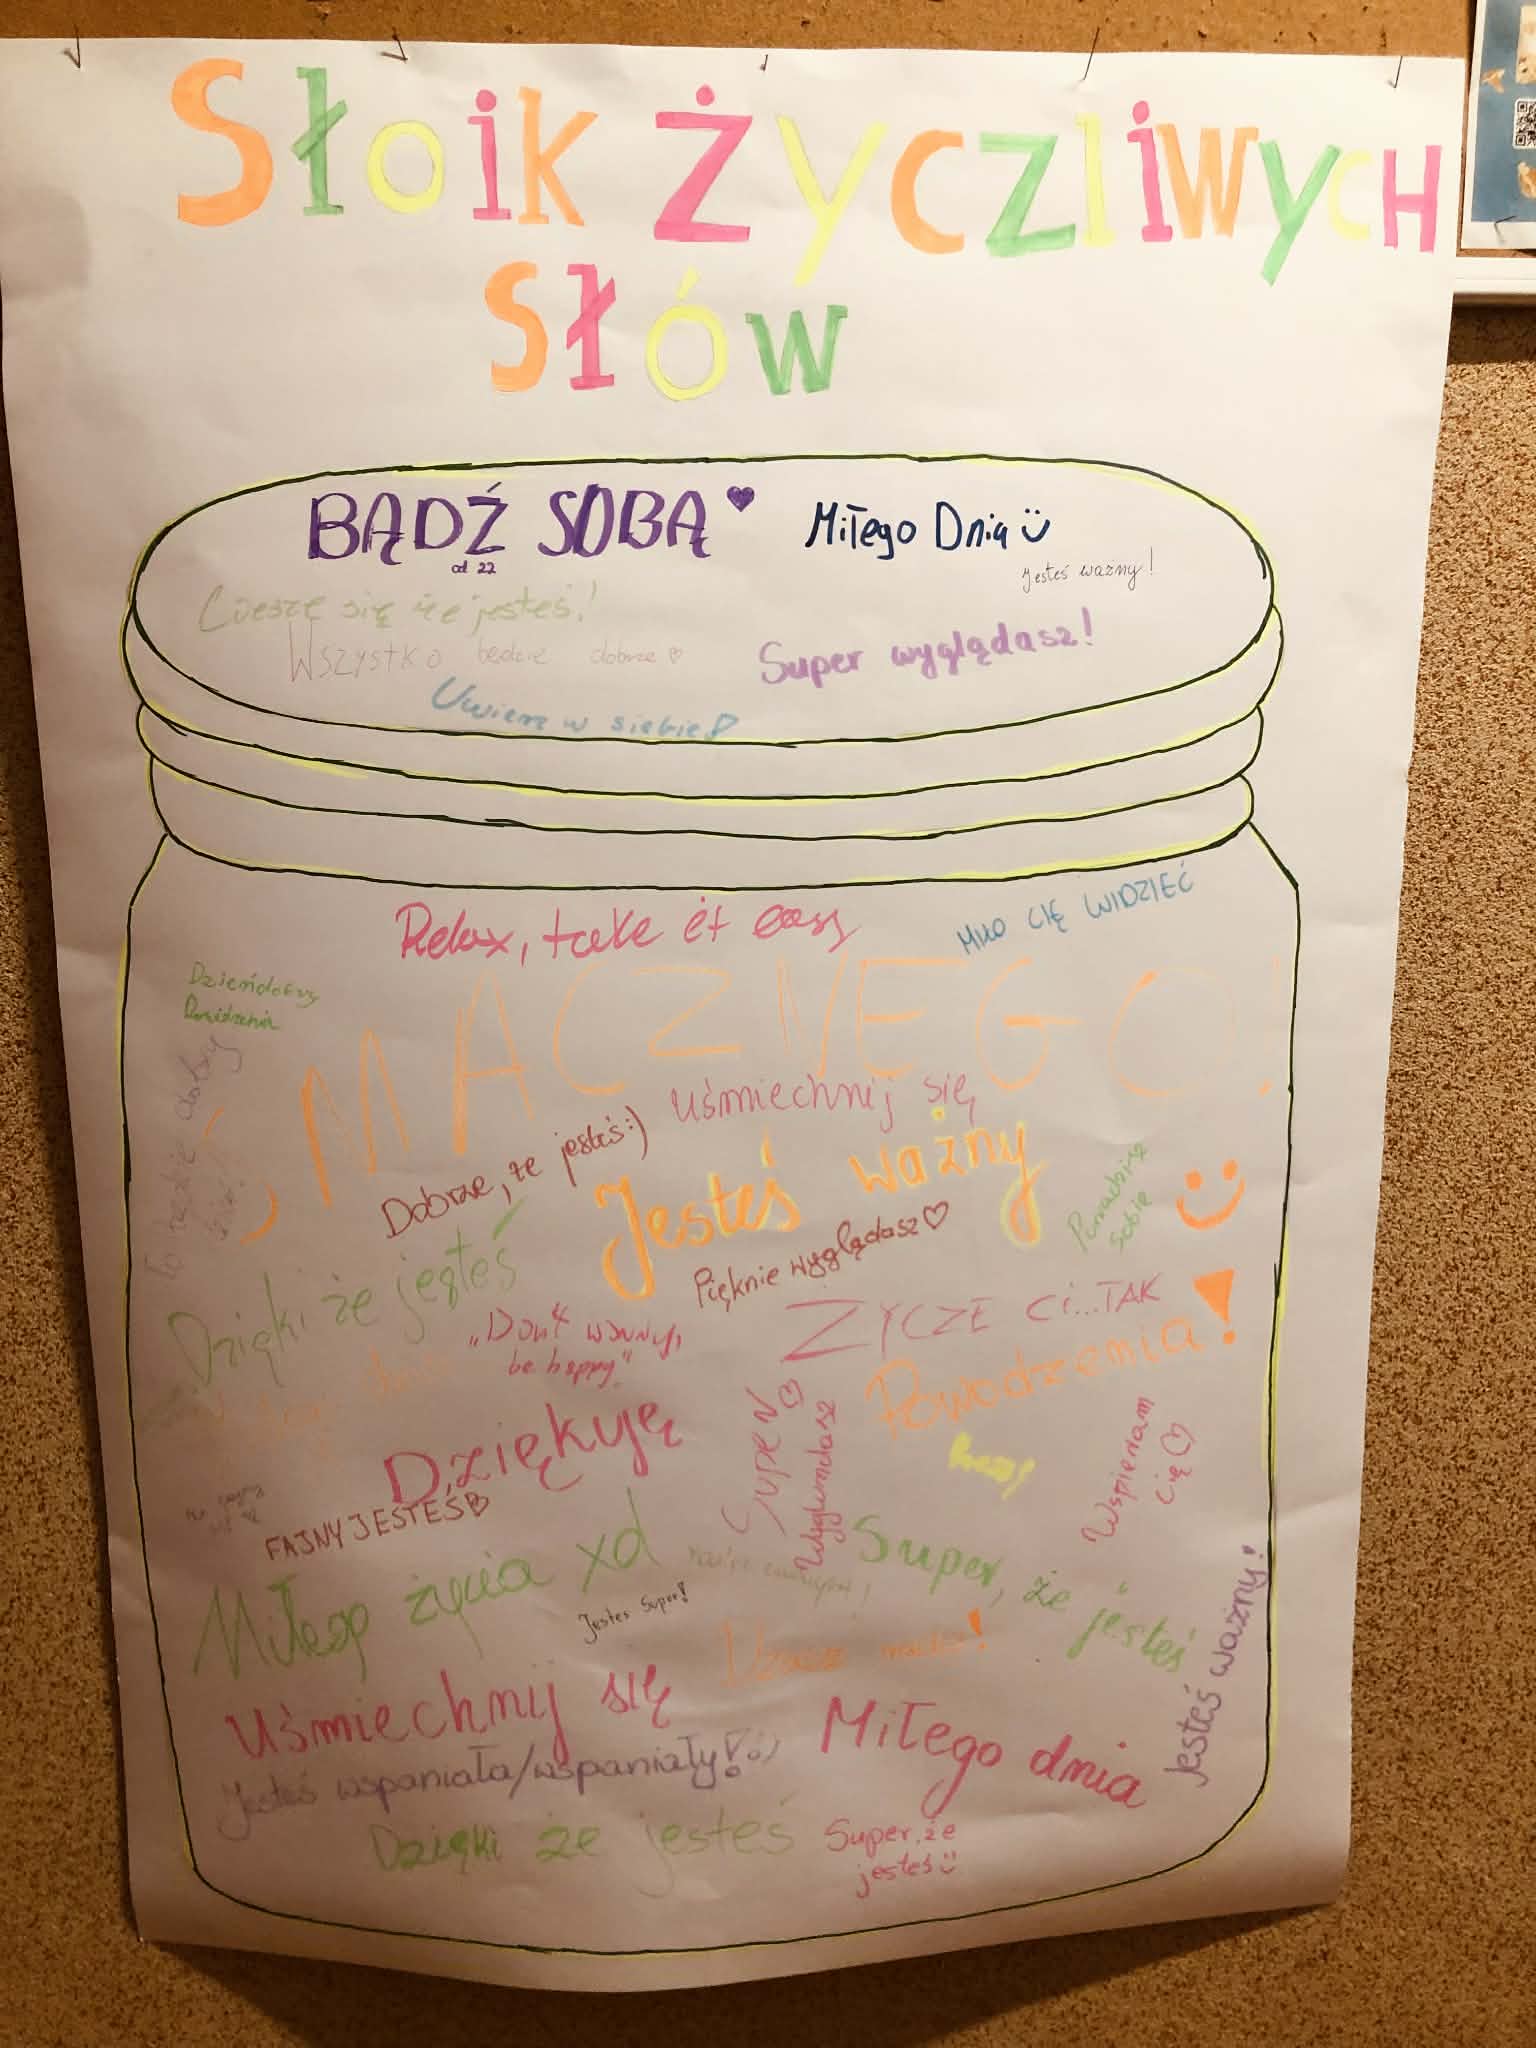 Słoik Życzliwych
Słów
BĄDŹ SOBĄ
od 22
Miłego Dnia
Jesteś ważny!
Cieszę się że jesteś!
Wszystko będzie dobrze
Super wyglądasz!
Uwierz w siebie!
Relax, take it easy
MIŁO CIĘ WIDZIEĆ
Dzieńdobry
SMACZNEGO!
To będzie dobry
dzień!
Uśmiechnij się
Dobrze, że jesteś:)
Jesteś ważny
Poradzisz
sobie
Pięknie wyglądasz
Dzięki że jesteś
"Don't worry,
be happy"
ŻYCZĘ CI...TAK
Powodzenia!
Dziękuję
SUPER
Wyglondasz
Wspieram
Cię
FAJNY JESTEŚ
Miłego życia xd
Jesteś Super!
Super, że jesteś
Jesteś ważny!
Uśmiechnij się
Jesteś wspaniała/wspaniały! :)
Miłego dnia
Dzięki że jesteś
Super, że
jesteś